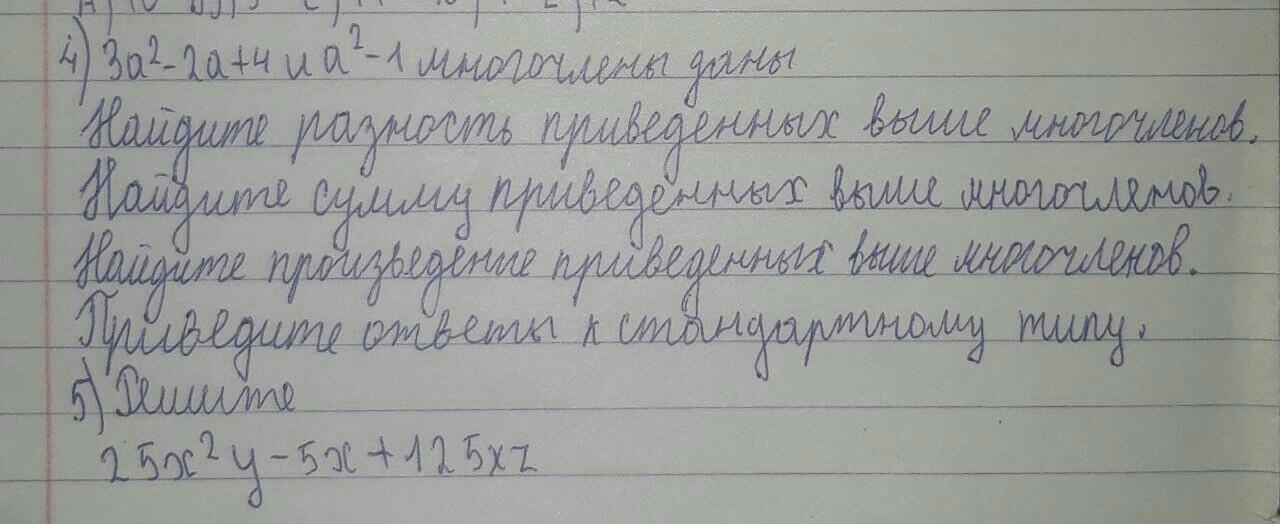 4) 3a²-2a+4 и a²-1 многочлены даны
Найдите разность приведенных выше многочленов.
Найдите сумму приведенных выше многочленов.
Найдите произведение приведенных выше многочленов.
Приведите ответы к стандартному типу.
5) Решите
25x²y-5x+125xz